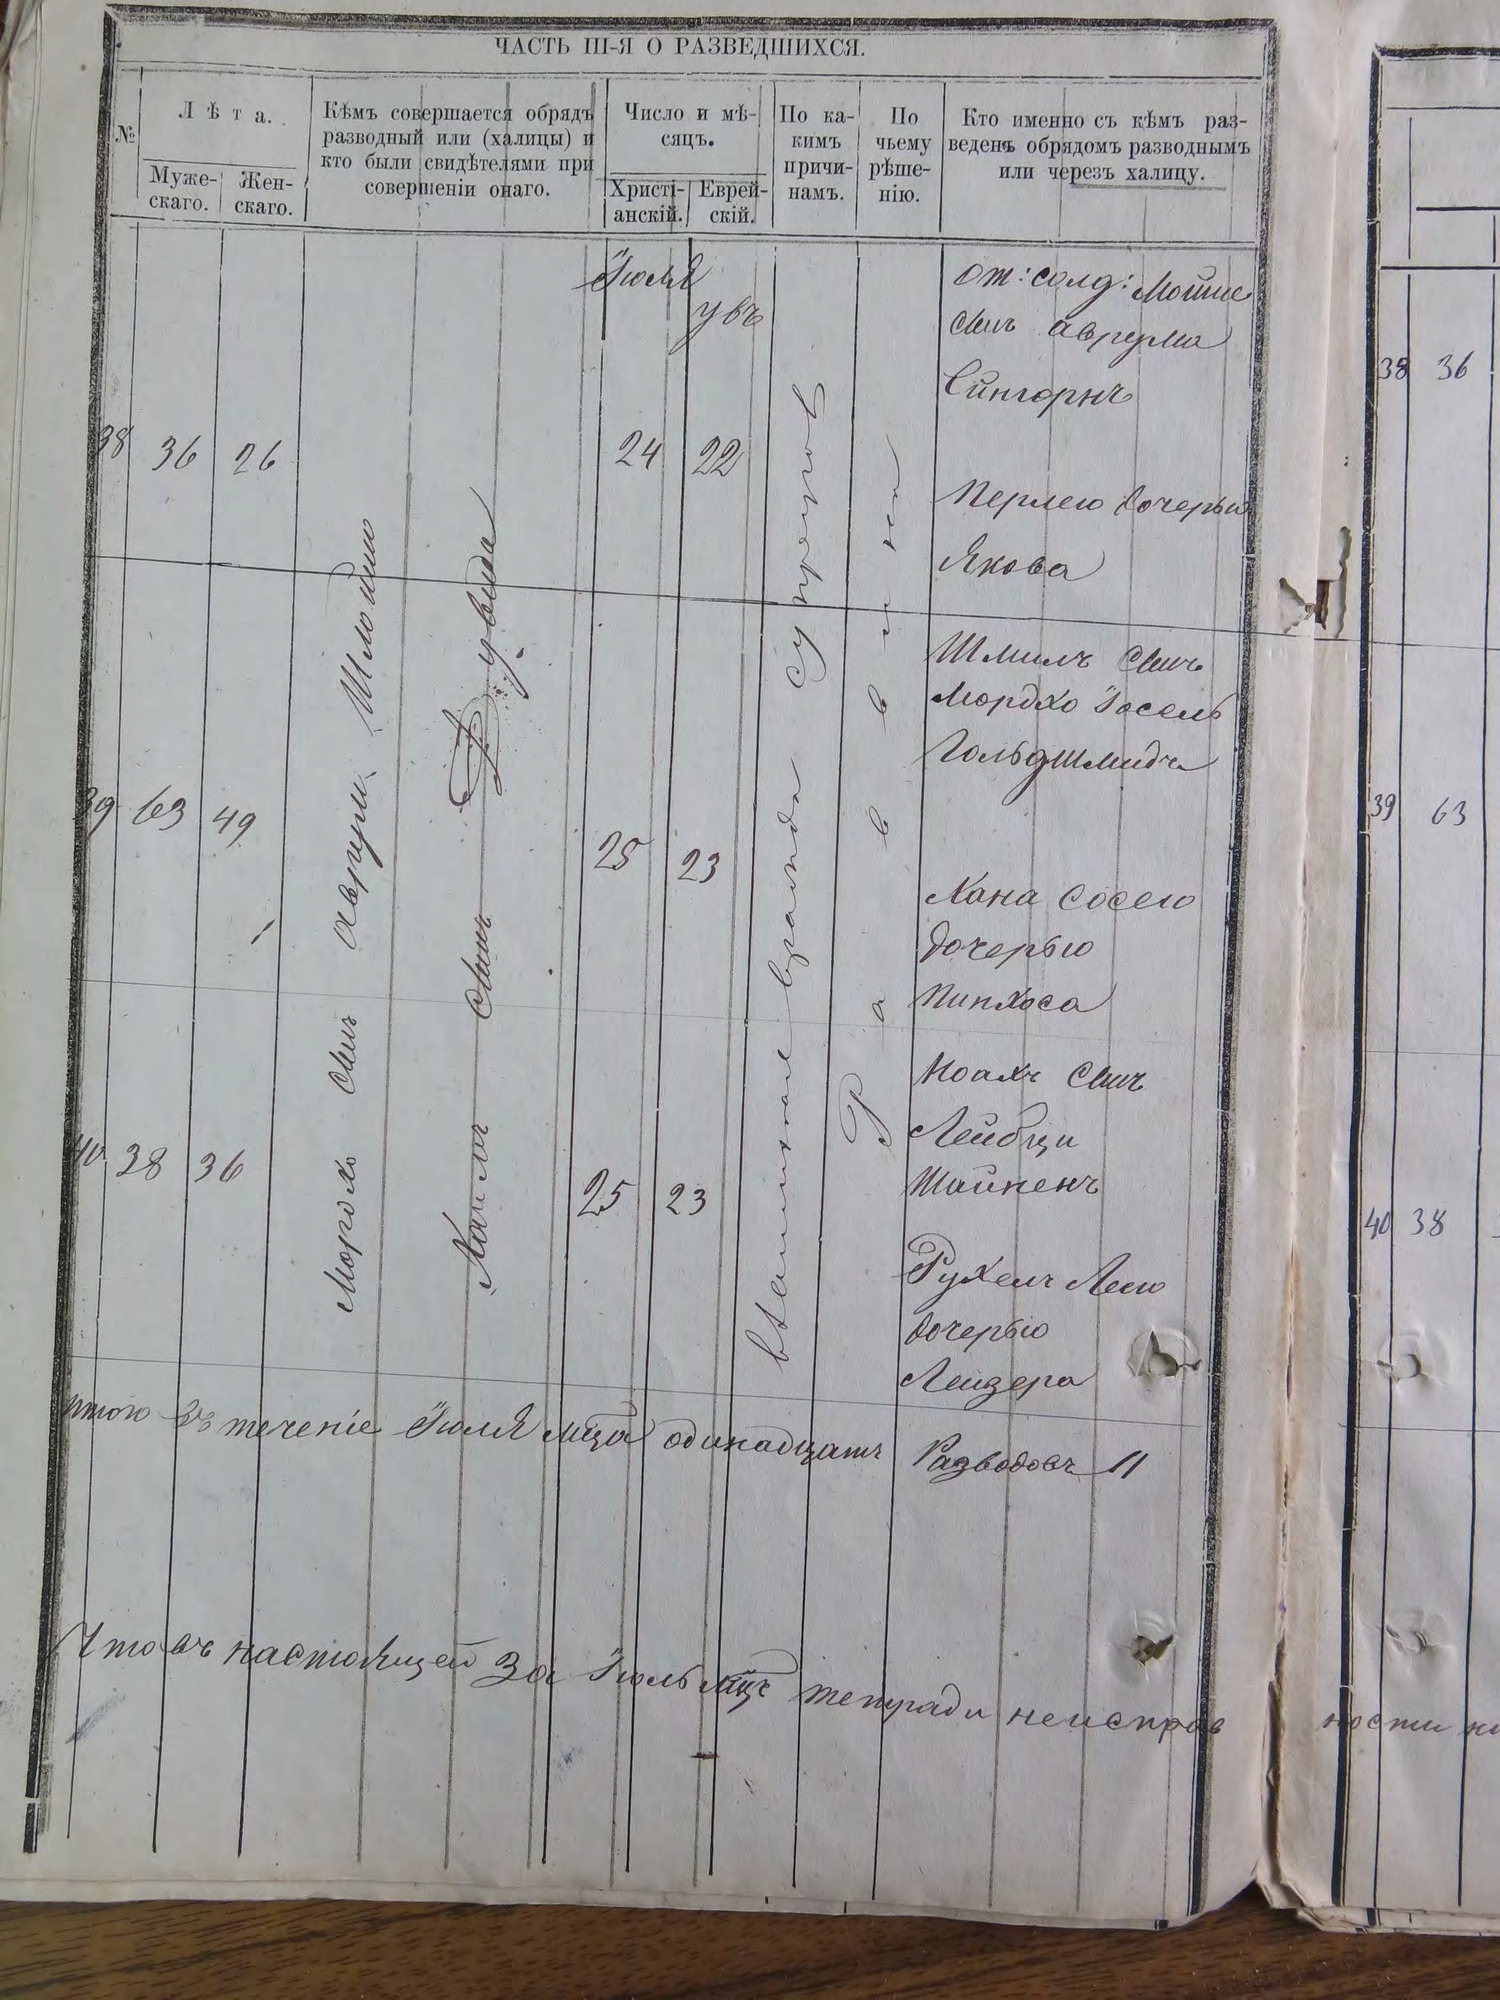 ЧАСТЬ III-Я О РАЗВЕДШИХСЯ.
№
Лѣта.
Муже-
скаго.
Жен-
скаго.
Кѣмъ совершается обрядъ
разводный или (халицы) и
кто были свидѣтелями при
совершеніи онаго.
Число и мѣ-
сяцъ.
Христі-
анскій.
Еврей-
скій.
По ка-
кимъ
причи-
намъ.
По
чьему
рѣше-
нію.
Кто именно съ кѣмъ раз-
веденъ обрядомъ разводнымъ
или черезъ халицу.
Мордхо сынъ Аврум Шлоймы
Хаимъ сынъ Дувида
взаимная вражда супругов
Раввина
Іюля
Увъ
38 36 26
24 22
От: солд: Мойше
сынъ Аврума
Сингорнъ
Перлею дочерью
Якова
39 63 49
25 23
Шмиль сынъ
Мордхо Іосель
Гольдшмидъ
Хана Сосею
дочерью
Пинхоса
40 38 36
25 23
Ноахъ сынъ
Лейбци
Шайкенъ
Рухель Леею
дочерью
Лейзера
итого въ теченіе Іюля мца одинадцать Разводовъ 11
Что въ настоящей за Іюль мцъ тетради неисправ ности
38 36
39 63
40 38